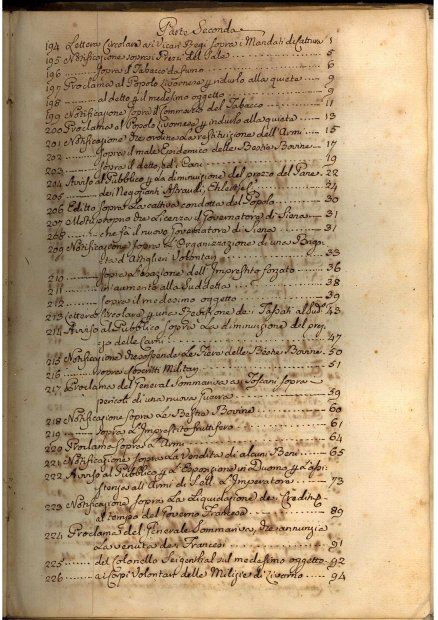 Parte Seconda
194 Lettera Circolare ai Vicari Regi sopra i Mandati di Cattura 1
195 Notificazione sopra i Prezzi del Sale 5
196 sopra il Tabacco da fumo 6
197 Proclama al Popolo Livornese p indurlo alla quiete 9
198 al detto p il medesimo oggetto 9
199 Notificazione sopra il Commercio del Tabacco 11
200 Proclama al Popolo Livornese p indurlo alla quiete 13
201 Notificazione che ordina la restituzione dell'Armi 15
202 sopra il male Epidemico delle Bestie Bovine 17
203 sopra il detto, ed i Cani 19
204 Avviso al Pubblico p la diminuzione del prezzo del Pane 22
205 dei Negozianti 24
206 Editto sopra la cattiva condotta del Popolo 30
207 Motuproprio che Licenza il Governatore di Siena 31
208 che fà il nuovo Governatore di Siena 31
209 Notificazione sopra l'Organizzazione di una Briga
ta d'Artiglieri Volontari 33
210 sopra l'esazione dell'Imprestito forzato 36
211 in aumento alla Suddetta 38
212 sopra il medesimo oggetto 39
213 Lettera Circolare p una 43
214 Avviso al Pubblico sopra la diminuzione del prez
zo della Carne 47
215 Notificazione che sospende le Fiere delle Bestie Bovine 50
216 sopra Militari 51
217 Proclama del General Sommariva ai Toscani sopra i
pericoli di una nuova guerra 59
218 Notificazione sopra le Bestie Bovine 60
219 sopra l'Imprestito fruttifero 61
220 Proclama sopra l'Armi 64
221 Notificazione sopra la Vendita di alcuni Beni 65
222 Avviso al Pubblico p l'Esposizione in Duomo p l'assi
stenza all'Armi di S. M. L'Imperatore 73
223 Notificazione sopra la Liquidazione dei Crediti
al tempo del Governo Francese 89
224 Proclama del Generale Sommariva, che annunzia
la venuta dei Francesi 91
225 del Colonello sul medesimo oggetto 92
226 ai Corpi Volontari delle Milizie di Livorno 94